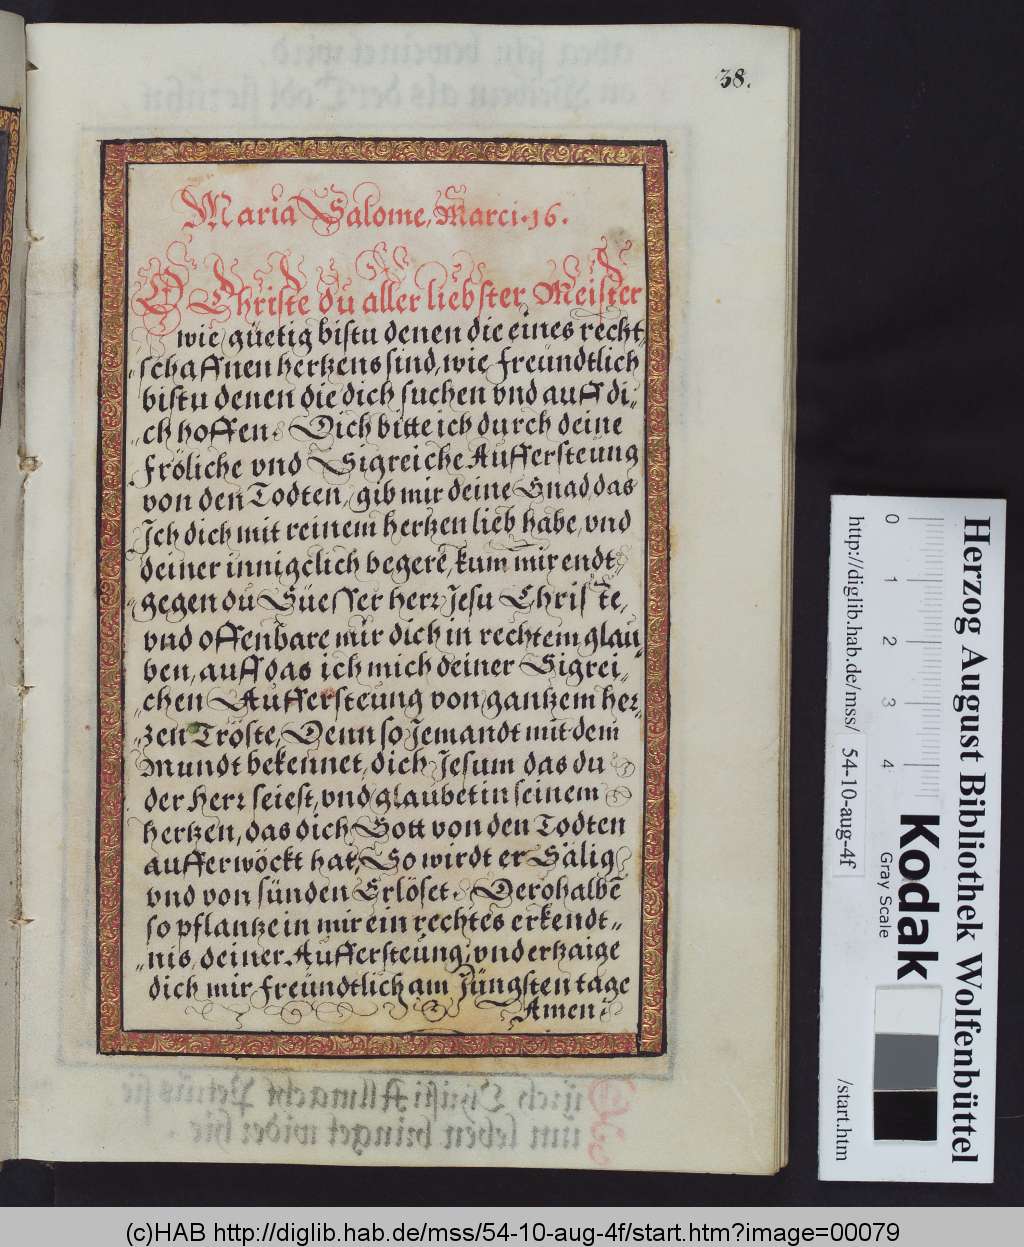 38.
Maria Salome, Marci. 16.
O Christe du aller liebster Meister
wie güetig bistu denen die eines recht„
„schaffnen hertzens sind, wie freündtlich
bistu denen die dich suchen vnd auff di„
„ch hoffen. Dich bitte ich durch deine
fröliche vnd Sigreiche Auffersteüng
von den Todten, gib mir deine Gnad, das
Ich dich mit reinem hertzen lieb habe, vnd
deiner innigclich begerē, kum̄ mir endt„
„gegen du Süesser herr Jesu Christe,
vnd offenbare mir dich in rechtem glau„
ben, auff das ich mich deiner Sigrei„
„chen Auffersteüng von gantzem her„
„zen Tröste, Denn so Jemandt mit dem
Mundt bekennet, dich Jesum das du
der Herr seiest, vnd glaubet in seinem
hertzen, das dich Gott von den Todten
aufferwöckt hat, So wirdt er Sälig
vnd von sünden Erlöset. Derohalbē
so pflantze in mir ein rechtes erkendt„
„nis, deiner Auffersteüng, vnd ertzaige
dich mir freündtlich am Jüngsten tage
Amen.
Herzog August Bibliothek Wolfenbüttel
0 1 2 3 4
Kodak
Gray Scale
http://diglib.hab.de/mss/ 54-10-aug-4f /start.htm
(c)HAB http://diglib.hab.de/mss/54-10-aug-4f/start.htm?image=00079